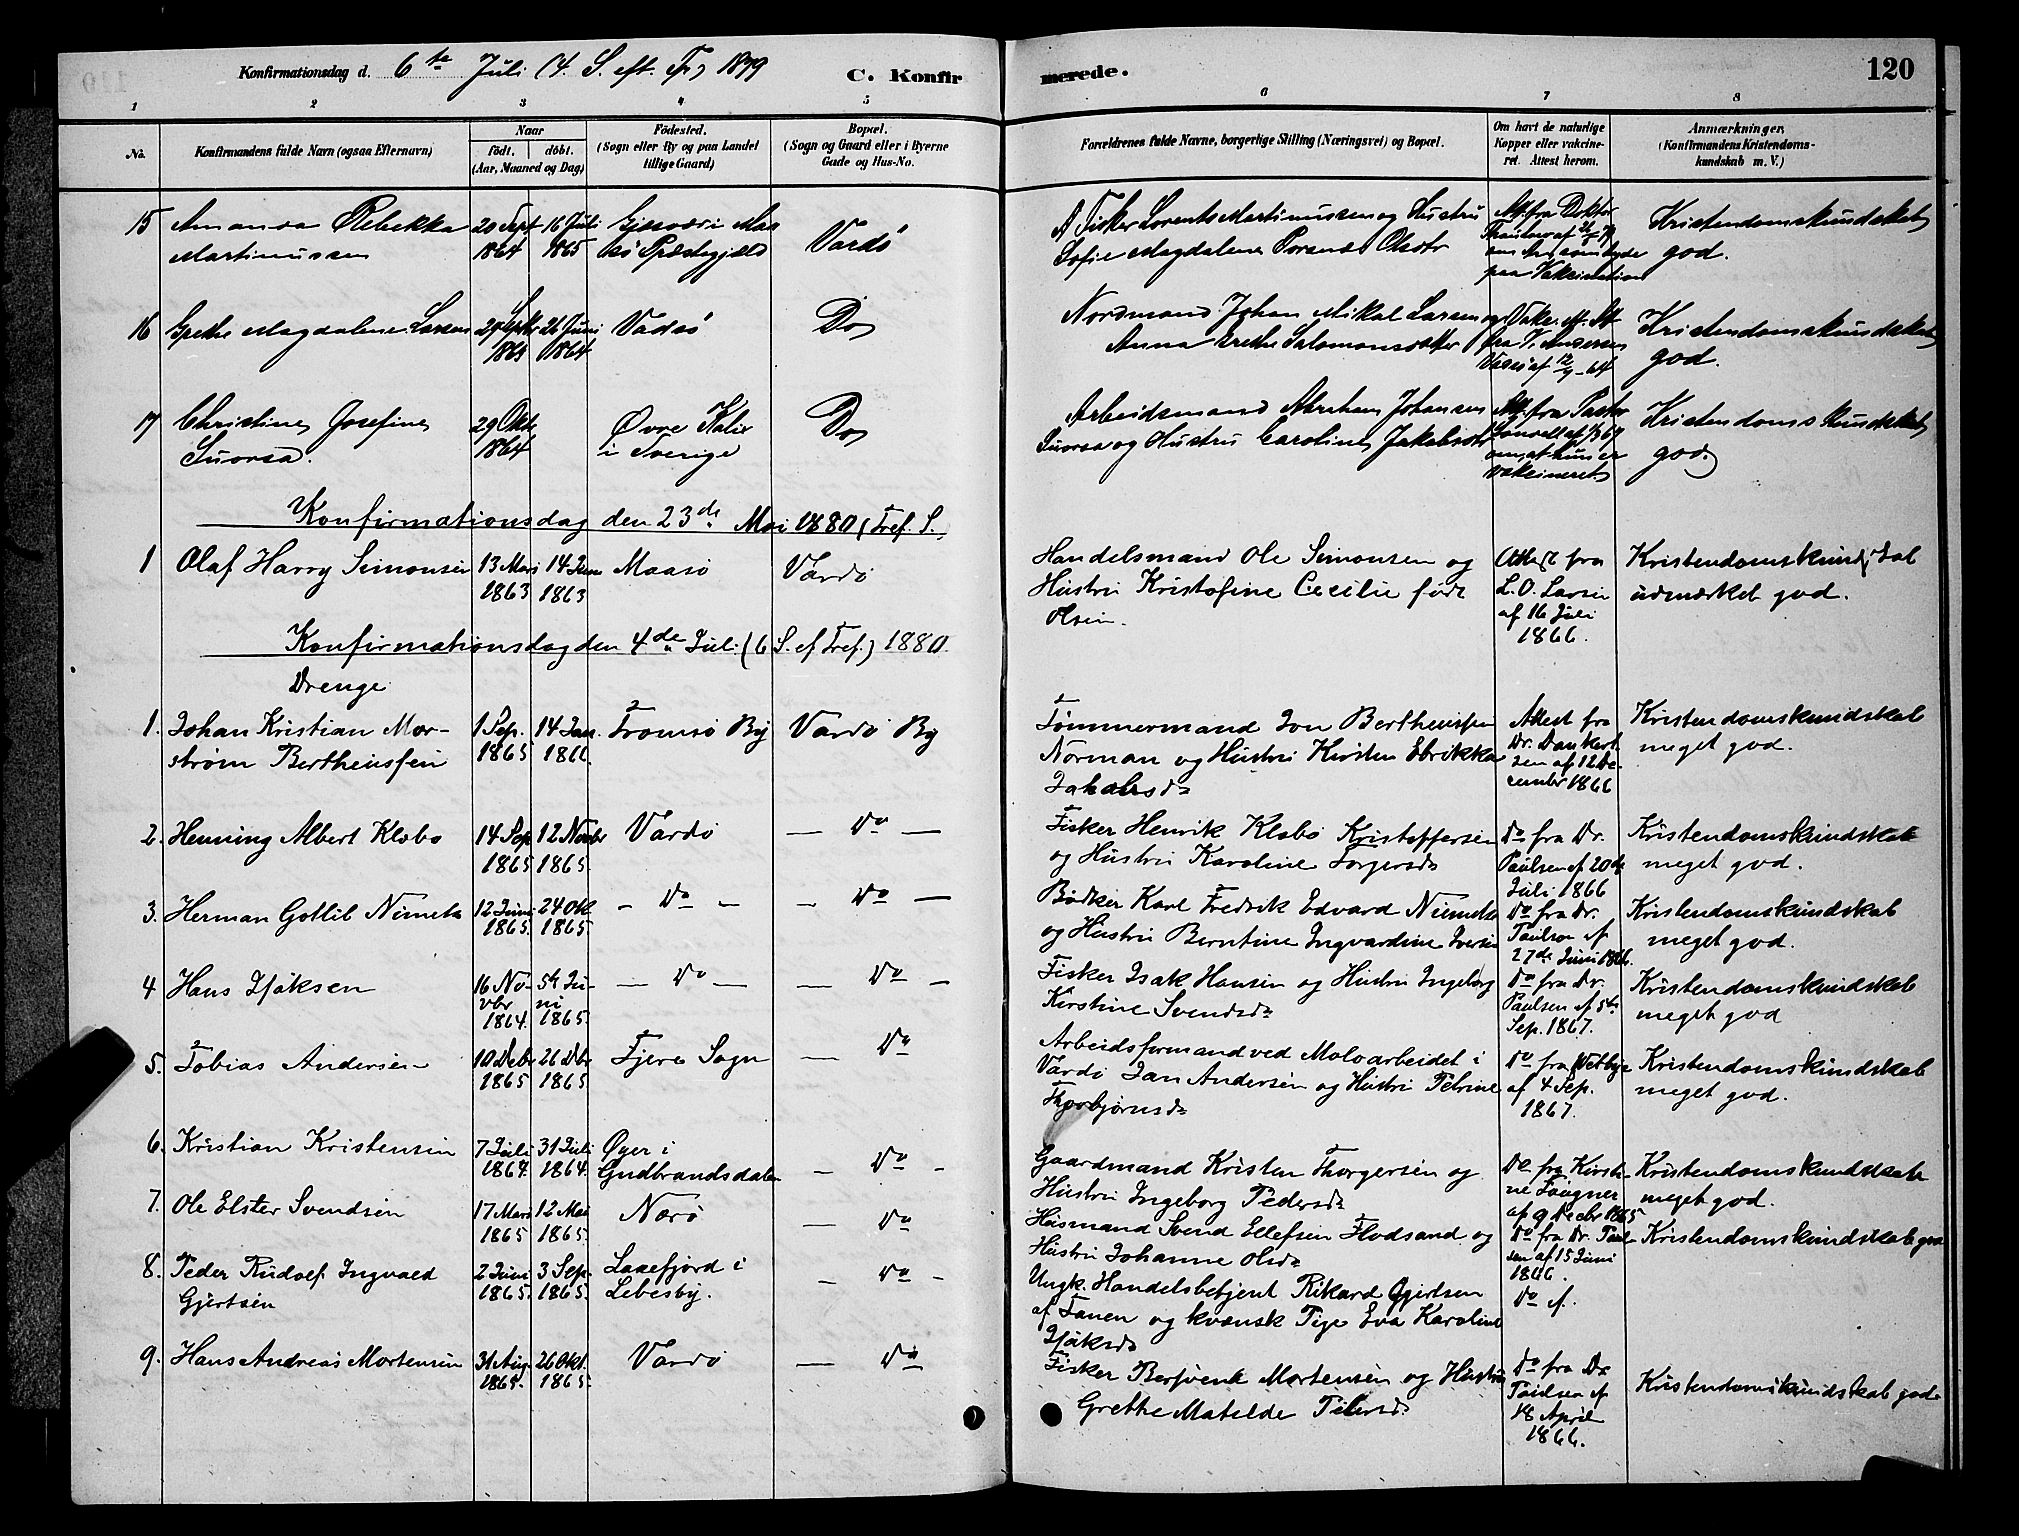 Konfirmationsdag d. 6te Juli (4. S. eft. Tr.) 1879
C. Konfirmerede.
120
1 2 3 4 5 6 7 8
No.
Konfirmandens fulde Navn (ogsaa Efternavn)
Naar
født. døbt.
(Aar, Maaned og Dag)
Fødested.
(Sogn eller By og paa Landet
tillige Gaard)
Bopæl.
(Sogn og Gaard eller i Byerne
Gade og Hus-No.
Forældrenes fulde Navne, borgerlige Stilling (Næringsvei) og Bopæl.
Om havt de naturlige
Kopper eller vakcine-
ret. Attest herom.
Anmærkninger,
(Konfirmandens Kristendoms-
kundskab m. V.)
15 Amanda Rebekka
Martinussen
20 Sept 1864
16 Juli 1865
Gjesvær i Maa
sø Præstegjæld
Vardø
Fisker Lorents Martinussen og Hustru
Sofie Magdalene Olsdtr
Att. fra Doktor
paa Vakcination
Kristendomskundskab
god.
16 Grethe Magdalene Larsen
29 Septr
26 Juni 1864
Vadsø
Do
Nordmand Johan Mikal Larsen og
Anna Grethe Salomonsdatter
fra K. Andersen
Vadsø af 12/9-64
Kristendomskundskab
god.
17 Christine Josefine
Suorsa.
29 Okt 1864
Øvre Kalix
i Sverige
Do
Arbeidsmand Abraham Johansen
Suorsa og Hustru Caroline Jakobsdtr
Att. fra Pastor
om, at hun er
vakcineret
Kristendomskundskab
god.
Konfirmationsdag den 23de Mai 1880 (Tref. S.)
1 Olaf Harry Simonsen
13 Mars 1863
14 Juni 1863
Maasø
Vardø
Handelsmand Ole Simonsen og
Hustru Kristofine Cecilie født
Olsen.
Attest fra
L. O. Larsen
af 16 Juli
1866.
Kristendomskundskab
udmærket god.
Konfirmationsdag den 4de Juli (6 S. ef Tref.) 1880.
Drenge
1. Johan Kristian Mor-
strøm Bertheussen
1 Sep. 1865
14 Jan. 1866.
Tromsø By
Vardø By
Tømmermand Jon Bertheussen
Norman og Hustru Kirsten Ebrikka
Jakobsd.
Attest fra
Dr. Dankert
sen af 12 De-
cember 1866
Kristendomskundskab
meget god.
2. Henning Albert Klæbo
14 Sep 1865
12 Novbr 1865.
Vardø
— Do —
Fisker Henrik Klæbo Kristoffersen
og Hustru Karoline Torgersd.
Do fra Dr.
Paulsen af 20de
Juli 1866
Kristendomskundskab
meget god.
3. Herman Gotlib Nimetz
12 Juni 1865.
24 Okt 1865
— Do —
— Do —
Bødker Karl Fredrik Edvard Nimetz
og Hustru Berntine Ingvardine Iversen
Do fra Dr.
Paulsen af
27de Juni 1866.
Kristendomskundskab
meget god.
4 Hans Isaksen
16 No-
vbr 1864.
5te Ju-
ni 1865.
— Do —
— Do —
Fisker Isak Hansen og Hustru Ingeborg
Kirstine Svendsd.
Do fra Dr.
Paulsen af 5te
Sep. 1867.
Kristendomskundskab
meget god
5. Tobias Andersen
10 Debr 1865
26 Dbr 1865
Fjere Sogn
— Do
Arbeidsformand ved Moloarbeidet i
Vardø Jan Andersen og Hustru Petrine
Thorbjørnsd.
Do fra
af 4 Sep.
1867.
Kristendomskundskab
meget god.
6. Kristian Kristensen
7 Juli 1864.
31 Juli 1864.
Øyer i
Gudbrandsdalen
— Do —
Gaardmand Kristen Thorgersen og
Hustru Ingeborg Pedersd.
Do fra Kirsti-
ne Faugner
af 9 Decbr 1865
Kristendomskundskab
meget god.
7. Ole Elster Svendsen
17 Mars 1865
12 Mai 1865.
Nærø
— Do
Husmand Svend Ellefsen Flodsand og
Hustru Johanne Olsd.
Do fra Dr. Paul-
sen af 15 Juni
1866.
Kristendomskundskab god
8. Peder Rudolf Ingvald
Gjertsen
2 Juni 1865.
3 Sep. 1865.
Laxefjord i
Lebesby.
— Do —
Ungk. Handelsbetjent Rikard Gjertsen
af Tanen og kvænsk Pige Eva Karoline
Isaksd.
Do af.
9. Hans Andreas Mortensen
31 Aug 1865.
26 Okt. 1865.
Vardø
— Do
Fisker Mortensen og Hustru
Grethe Matilde Petersd.
Do fra Dr
Paulsen af
18 April
1866.
Kristendomskundskab god